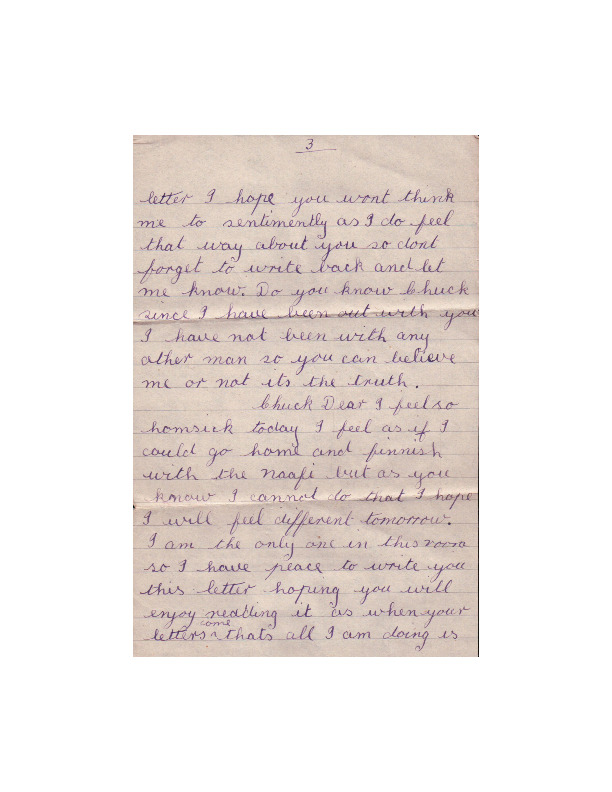 3
letter I hope you wont think
me to sentimently as I do feel
that way about you so dont
forget to write back and let
me know. Do you know Chuck
since I have been out with you
I have not been with any
other man so you can believe
me or not its the truth.
Chuck Dear I feel so
homsick today I feel as if I
could go home and finnish
with the naafi but as you
know I cannot do that I hope
I will feel different tomorrow.
I am the only one in this room
so I have peace to write you
this letter hoping you will
enjoy readling it as when your
come
letters ^ thats all I am doing is